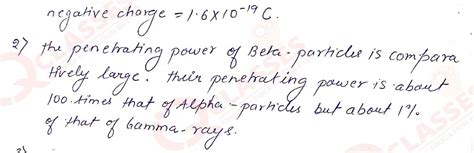 negative charge = 1.6X10⁻¹⁹ C.
2) the penetrating power of Beta-particles is compara
tively large. their penetrating power is about
100 times that of Alpha-particles but about 1%
of that of Gamma-rays.